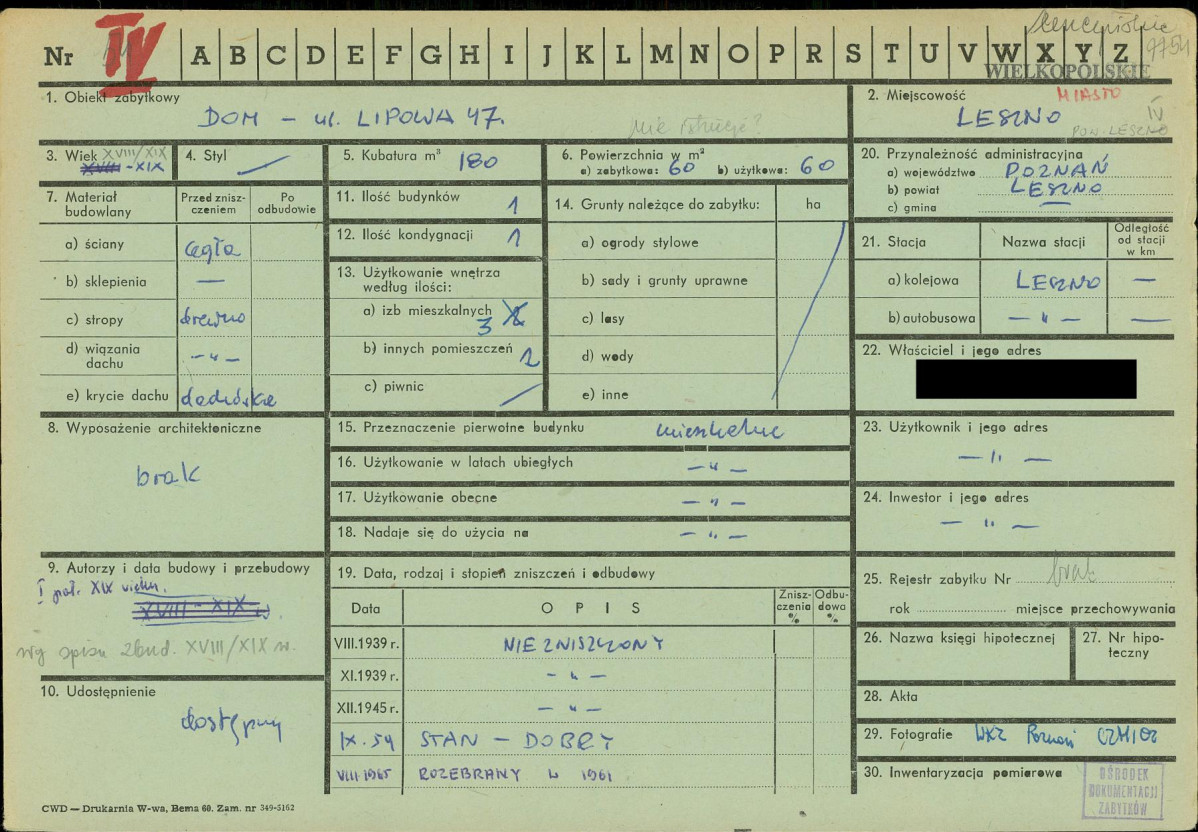 Nr IV A B C D E F G H I J K L M N O P R S T U V W X Y Z
WIELKOPOLSKIE
1. Obiekt zabytkowy
DOM – ul. LIPOWA 47.
nie istnieje?
2. Miejscowość MIASTO
LESZNO IV
POW. LESZNO
3. Wiek XVIII/XIX
XVIII - XIX
4. Styl
5. Kubatura m³ 180
6. Powierzchnia w m²
a) zabytkowa: 60 b) użytkowa: 60
20. Przynależność administracyjna
a) województwo POZNAŃ
b) powiat LESZNO
c) gmina —
7. Materiał budowlany
Przed zniszczeniem
Po odbudowie
a) ściany cegła
b) sklepienia —
c) stropy drewno
d) wiązania dachu — „ —
e) krycie dachu dachówka
11. Ilość budynków 1
12. Ilość kondygnacji 1
13. Użytkowanie wnętrza
według ilości:
a) izb mieszkalnych 3
b) innych pomieszczeń 2
c) piwnic
14. Grunty należące do zabytku: ha
a) ogrody stylowe
b) sady i grunty uprawne
c) lasy
d) wody
e) inne
21. Stacja Nazwa stacji Odległość od stacji w km
a) kolejowa LESZNO —
b) autobusowa — „ — —
22. Właściciel i jego adres
8. Wyposażenie architektoniczne
brak
15. Przeznaczenie pierwotne budynku mieszkalne
16. Użytkowanie w latach ubiegłych — „ —
17. Użytkowanie obecne — „ —
18. Nadaje się do użycia na — „ —
23. Użytkownik i jego adres
— „ —
24. Inwestor i jego adres
— „ —
9. Autorzy i data budowy i przebudowy
I poł. XIX wieku.
XVIII - XIX w.
wg spisu zbud. XVIII/XIX w.
10. Udostępnienie
dostępny
19. Data, rodzaj i stopień zniszczeń i odbudowy
Data O P I S Zniszczenia % Odbudowa %
VIII.1939 r. NIE ZNISZCZONY
XI.1939 r. — „ —
XII.1945 r. — „ —
IX. 59 STAN – DOBRY
VIII 1965 ROZEBRANY W 1961
25. Rejestr zabytku Nr brak
rok miejsce przechowywania
26. Nazwa księgi hipotecznej
27. Nr hipoteczny
28. Akta
29. Fotografie WKZ Poznań OZMiOZ
30. Inwentaryzacja pomiarowa
OŚRODEK
DOKUMENTACJI
ZABYTKÓW
CWD — Drukarnia W-wa, Bema 60. Zam. nr 349-5162